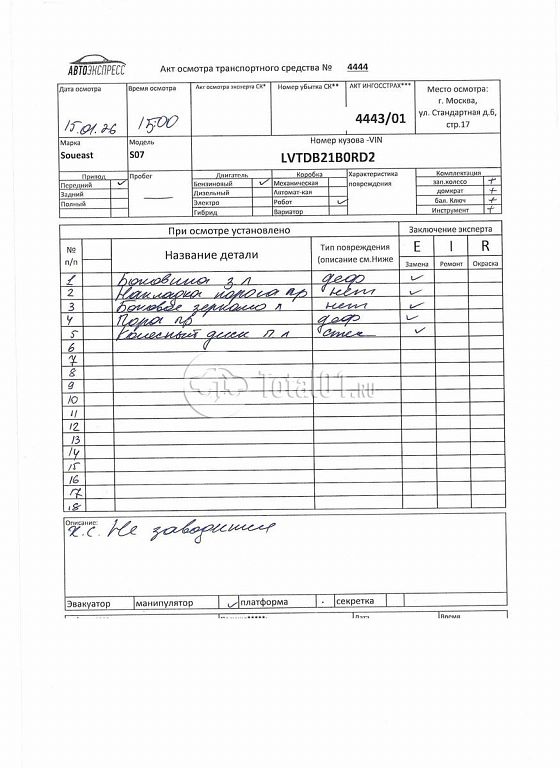 АВТОЭКСПРЕСС
Акт осмотра транспортного средства № 4444
Дата осмотра
15.01.26
Время осмотра
15 00
Акт осмотра эксперта СК*
Номер убытка СК**
АКТ ИНГОССТРАХ***
4443/01
Место осмотра:
г. Москва,
ул. Стандартная д.6,
стр.17
Марка
Soueast
Модель
S07
Номер кузова -VIN
LVTDB21B0RD2
Привод
Передний ✓
Задний
Полный
Пробег
—
Двигатель
Бензиновый ✓
Дизельный
Электро
Гибрид
Коробка
Механическая
Автомат-кая
Робот ✓
Вариатор
Характеристика
повреждения
Комплектация
зап.колесо +
домкрат +
бал. Ключ +
Инструмент +
При осмотре установлено
Заключение эксперта
№
п/п
Название детали
Тип повреждения
(описание см.Ниже
E I R
Замена Ремонт Окраска
1 Боковина з л деф ✓
2 Накладка порога пр нет ✓
3 Боковое зеркало л нет ✓
4 пр деф ✓
5 Колесный диск п л ✓
6
7
8
9
10
11
12
13
14
15
16
17
18
Total01.ru
Описание:
х.с. Не заводится
Эвакуатор манипулятор ✓ платформа - секретка
Дата
Время